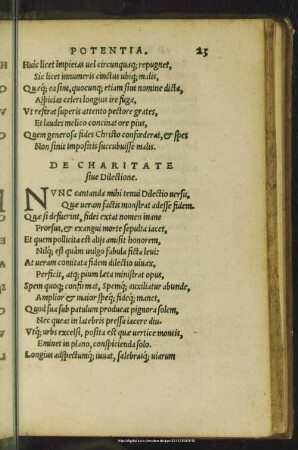 POTENTIA. 23
Huic licet impietas uel circunquaq; repugnet,
Sic licet innumeris cinctus ubiq; malis,
Quæq; ea sint, quocunq; etiam sint nomine dicta,
Aspicias celeri longius ire fuga,
Vt referat superis attento pectore grates,
Et laudes melico concinat ore pius,
Quem generosa fides Christo confœderat, & spes
Non sinit impositis succubuisse malis.
DE CHARITATE
siue Dilectione.
NVNC cantanda mihi tenui Dilectio uersu,
Quæ ueram factis monstrat adesse fidem.
Quæ si defuerint, fidei extat nomen inane
Prorsus, & exangui morte sepulta iacet,
Et quem pollicita est alijs amisit honorem,
Nilq; est quàm uulgo fabula ficta leui:
At ueram comitata fidem dilectio uiuax,
Perficit, atq; pium læta ministrat opus,
Spem quoq; confirmat, Spemq; auxiliatur abunde,
Amplior & maior speq; fideq; manet,
Quòd sua sub patulum producat pignora solem,
Nec queat in latebris pressa iacere diu.
Vtq; urbs excelsi, posita est quæ uertice montis,
Eminet in plano, conspicienda solo.
Longius adspectumq; iuuat, salebrasq; uiarum